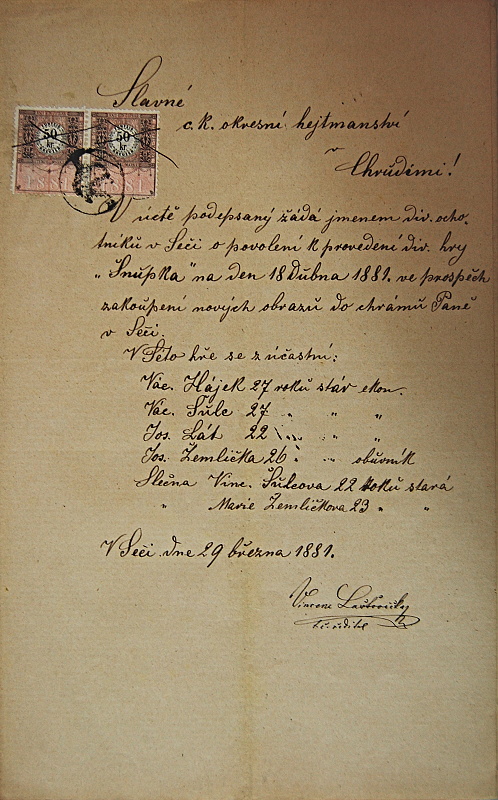 Slavné
c. k. okresní hejtmanství
v
Chrudimi!
50 kr. 50 kr.
1881 1881
V úctě podepsaný žádá jmenem div. ocho-
tníků v Seči o povolení k provedení div. hry
„Šnupka" na den 18 Dubna 1881. ve prospěch
zakoupení nových obrazů do chrámu Páně
v Seči.
V této hře se zúčastní:
Vác. Hájek 27 roků stár ekon.
Vác. Šulc 27 „ „ „
Jos. Lát 22 „ „ „
Jos. Žemlička 26 „ „ obuvník
Slečna Vinc. Šulcova 22 roků stará
„ Marie Žemličkova 23 „ „
V Seči dne 29 března 1881.
Vincenc